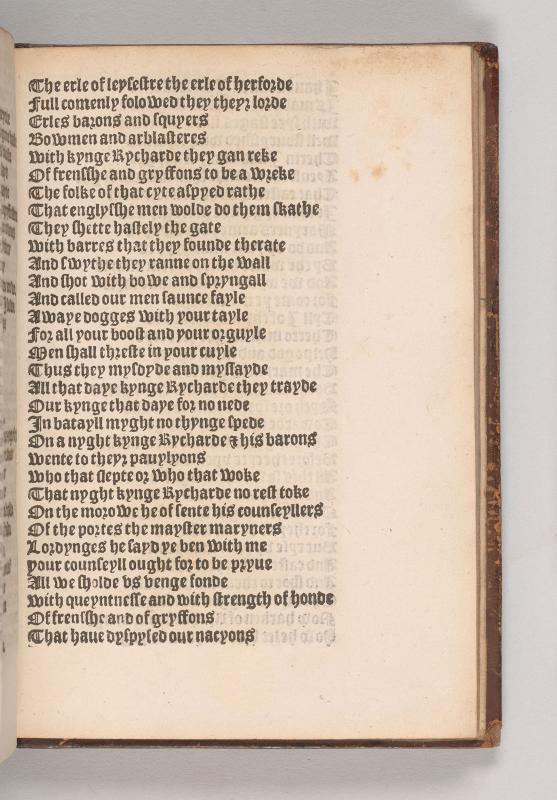 The erle of leysestre the erle of herforde
Full comenly folowed they theyr lorde
Erles barons and squyers
Bowmen and arblasteres
with kynge Rycharde they gan reke
Of frensshe and gryffons to be a wreke
The folke of that cyte aspyed rathe
That englysshe men wolde do them skathe
They shette hastely the gate
with barres that they founde therate
And swythe they ranne on the wall
And shot with bowe and spryngall
And called our men saunce fayle
Awaye dogges with your tayle
For all your boost and your orguyle
Men shall threste in your cuyle
Thus they mysdyde and myssayde
All that daye kynge Rycharde they trayde
Our kynge that daye for no nede
In batayll myght no thynge spede
On a nyght kynge Rycharde & his barons
wente to theyr pauylyons
who that slepte or who that woke
That nyght kynge Rycharde no rest toke
On the morowe he of sente his counseyllers
Of the portes the mayster maryners
Lordynges he sayd ye ben with me
your counseyll ought for to be pryue
All we sholde vs venge fonde
with queyntnesse and with strength of honde
Of frensshe and of gryffons
That haue dyspysed our nacyons